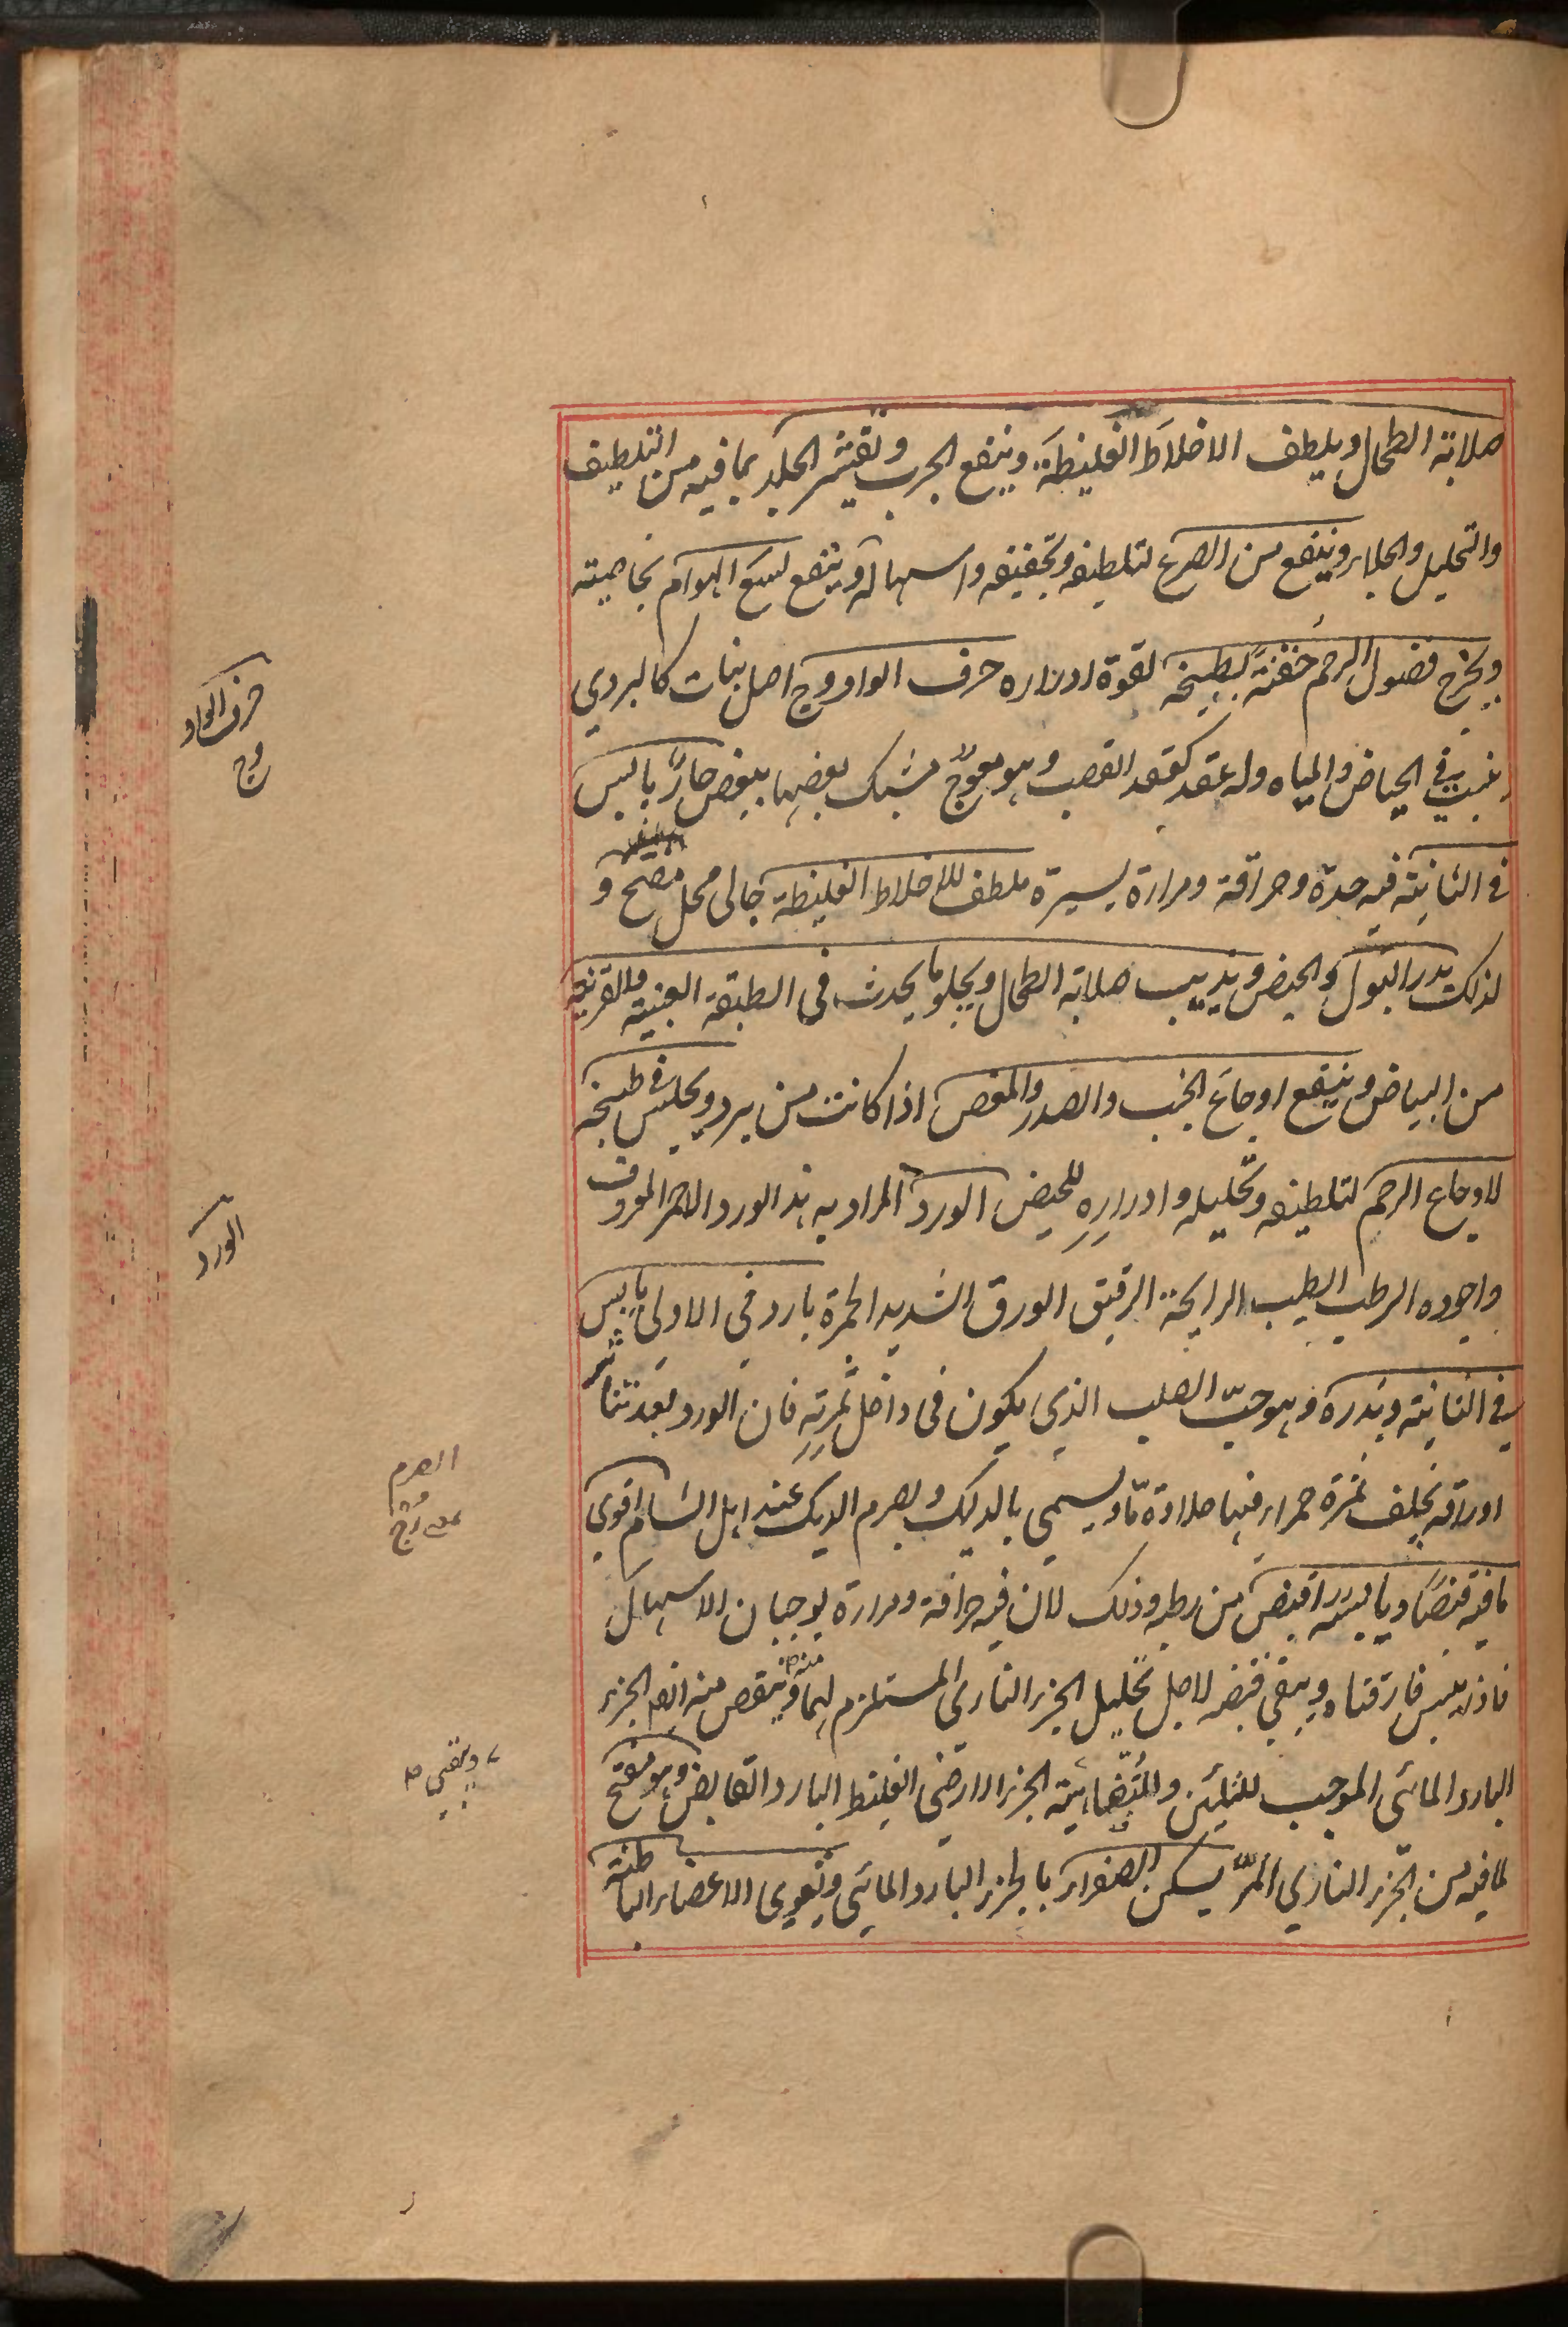 صلابة الطحال ويلطف الاخلاط الغليظة وينفع الجرب وتقشر الجلد بما فيه من التلطيف
والتحليل والجلاء وينفع من الصرع لتلطيفه وتجفيفه واسهاله وينفع لسع الهوام بخاصيته
ويخرج فضول الرحم حقنة بطبيخه لقوة ادراره حرف الواو وج اصل نبات كالبردي
ينبت في الحياض والمياه وله عقد كعقد القصب وهو معوج مشبك بعضها ببعض حار يابس
في الثانية فيه حدة وحراقة ومرارة يسيرة ملطف للاخلاط الغليظة جالى محلل مفتح و
لذلك يدر البول والحيض ويذيب صلابة الطحال ويجلو ما يحدث في الطبقة العنبية والقرنية
من البياض وينفع اوجاع الجنب والصدر والمغص اذا كانت من برد ويجلس في طبيخه
لاوجاع الرحم لتلطيفه وتحليله وادراره للحيض الورد المراد به هذا الورد الاحمر المعروف
واجوده الرطب الطيب الرايحة الرقيق الورق الشديد الحمرة بارد في الاولى يابس
في الثانية وبذره وهو حب الصلب الذي يكون فى داخل ثمرته فان الورد بعد تناثر
اوراقه يخلف ثمرة حمراء فيها حلاوة ما ويسمى بالديك وبصرم الديك عند اهل الشام اقوى
ما فيه قبضا ويابسه اقبض من رطبه وذلك لان فيه حرافة ومرارة يوجبان الاسهال
فاذا يبس فارقتاه ويبقى قبضه لاجل تحليل الجزء الناري المستلزم لهما وينقص منه ايضا الجزء
البارد المائى الموجب للتليين الجزء الارضي الغليظ البارد القابض وهو مفتح
لما فيه من الجزء الناري المر يسكن الصفراء بالجزء البارد المائي ويقوى الاعضاء الباطنة
حرف الواو
وج
الورد
الصرم
ويبقى